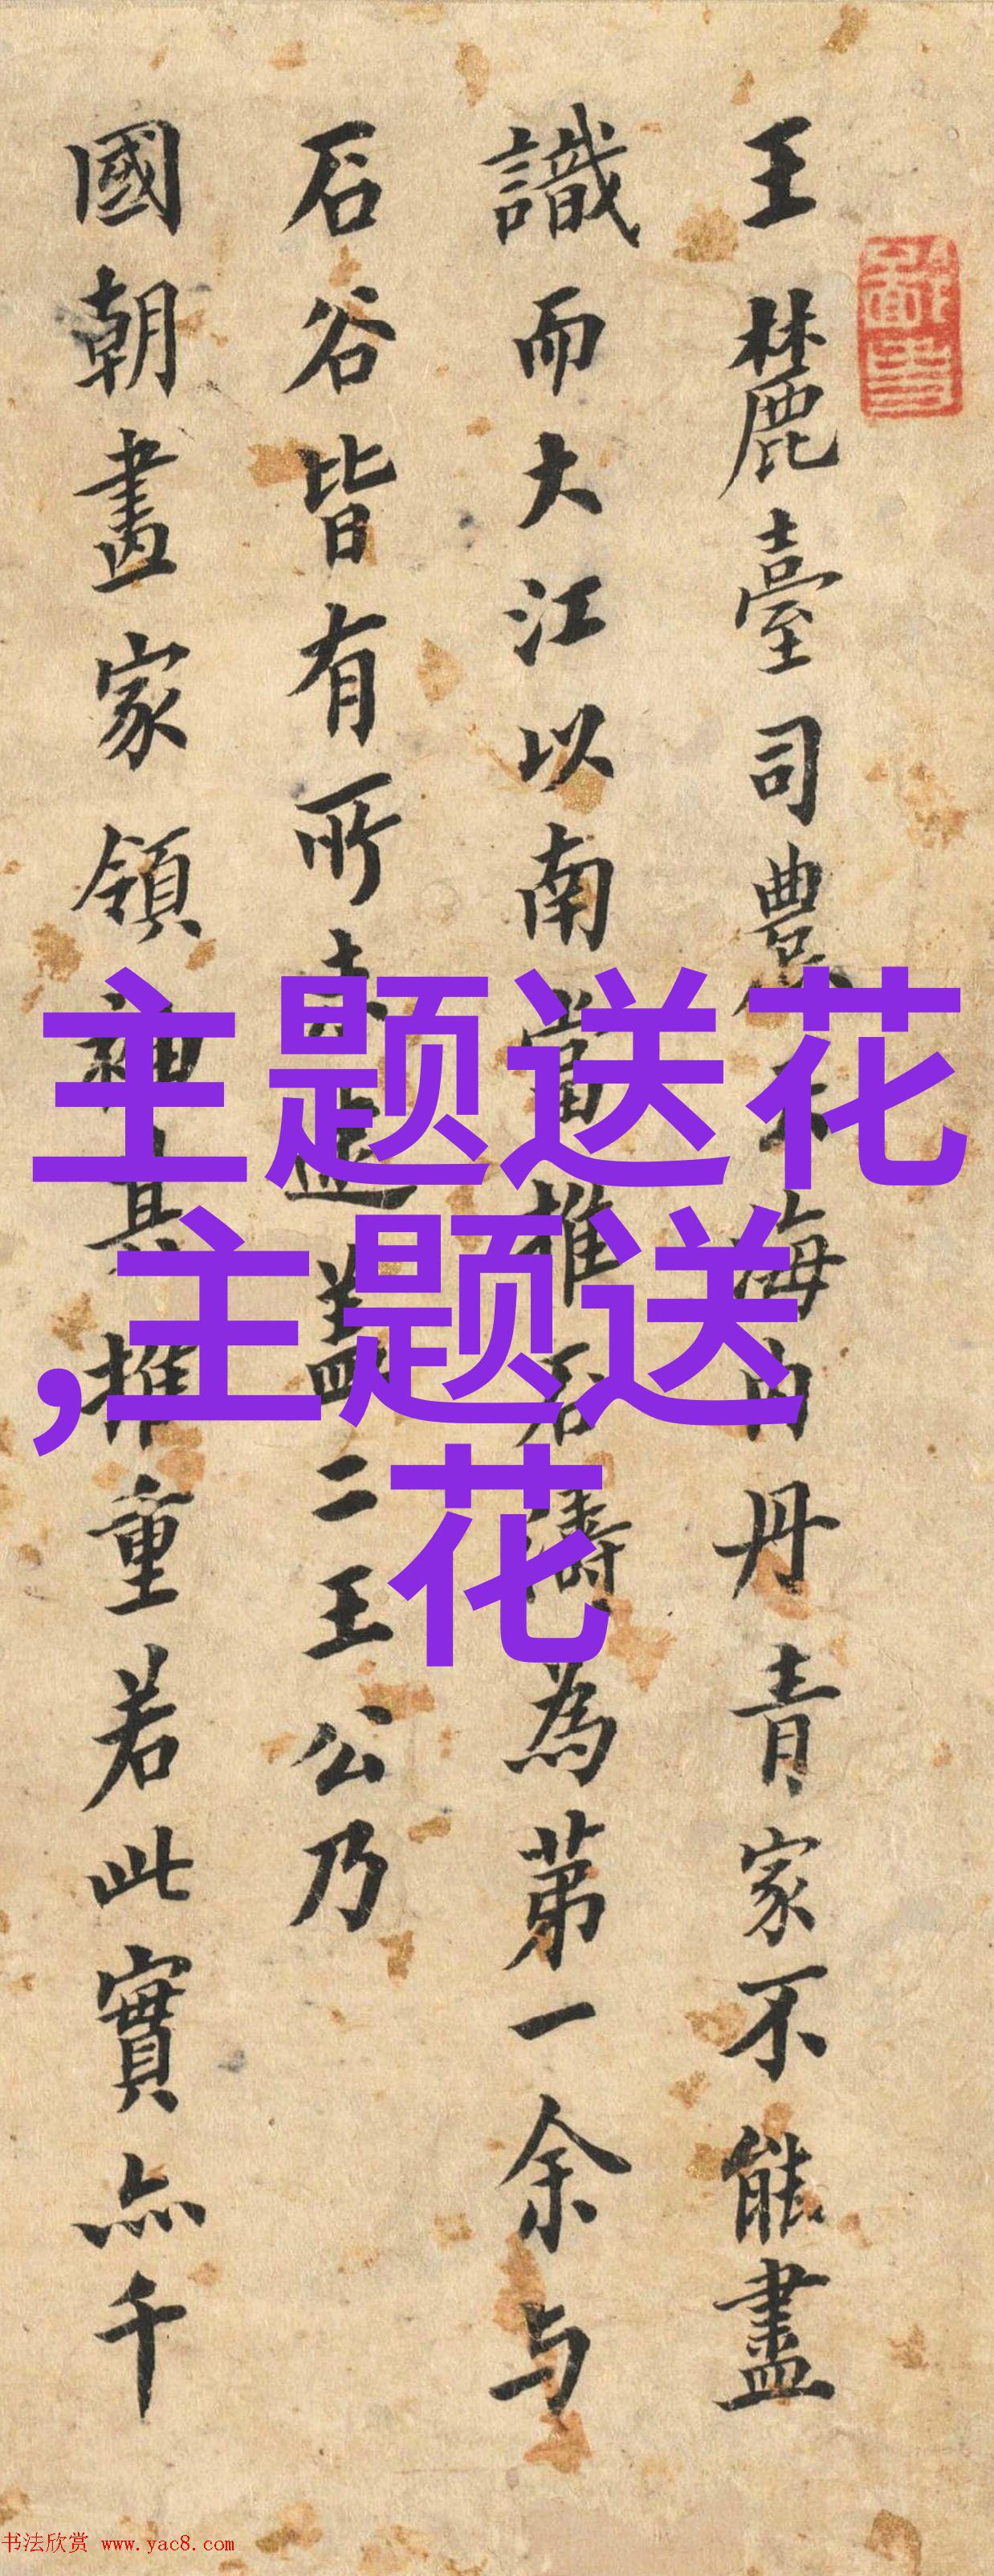 王麓臺司農云海内丹青家不能盡
識而大江以南當推石濤為苐一余与
石谷皆有所未逮盖二王公乃
國朝畫家領袖其推重若此實亦千
主题送花
,主题送
花
书法欣赏 www.yac8.com